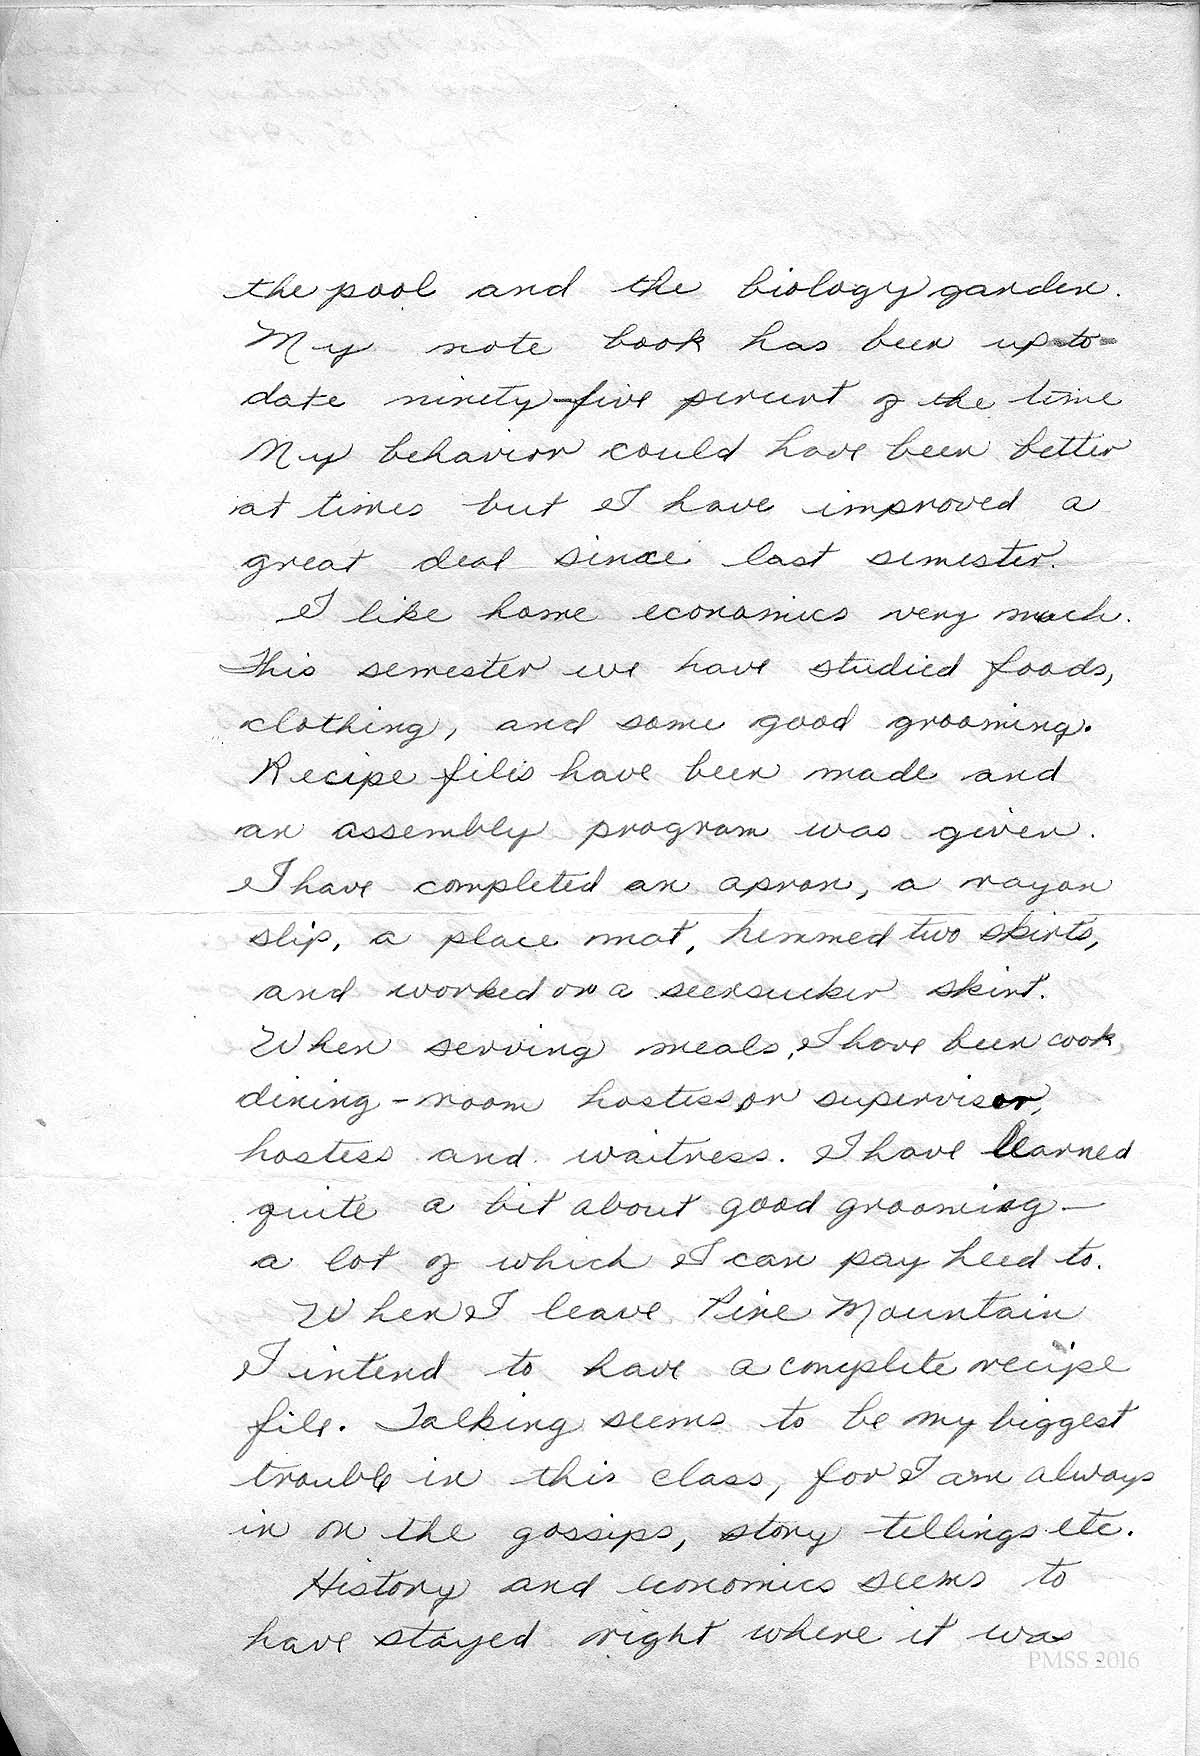 the pool and the biology garden.
My note book has been up-to-
date ninety-five percent of the time
My behavior could have been better
at times but I have improved a
great deal since last semester.
I like home economics very much.
This semester we have studied foods,
clothing, and some good grooming.
Recipe files have been made and
an assembly program was given.
I have completed an apron, a rayon
slip, a place mat, hemmed two skirts,
and worked on a seersucker skirt.
When serving meals, I have been cook,
dining-room hostess or supervisor,
hostess and waitress. I have learned
quite a bit about good grooming—
a lot of which I can pay heed to.
When I leave Pine Mountain
I intend to have a complete recipe
file. Talking seems to be my biggest
trouble in this class, for I am always
in on the gossips, story tellings etc.
History and economics seems to
have stayed right where it was
PMSS 2016